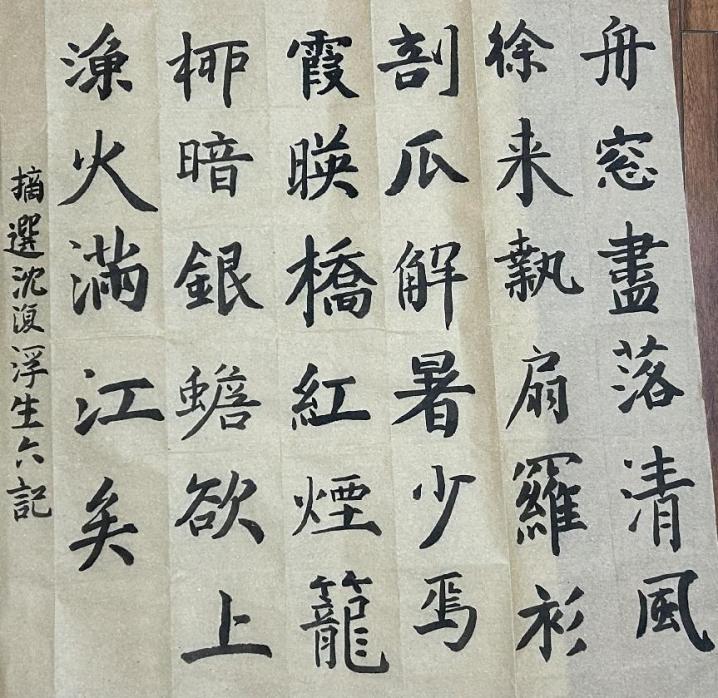 舟窓盡落清風
徐来執扇羅衫
剖瓜解暑少焉
霞暎橋紅煙籠
柳暗銀蟾欲上
漁火滿江矣
摘選沈復浮生六記